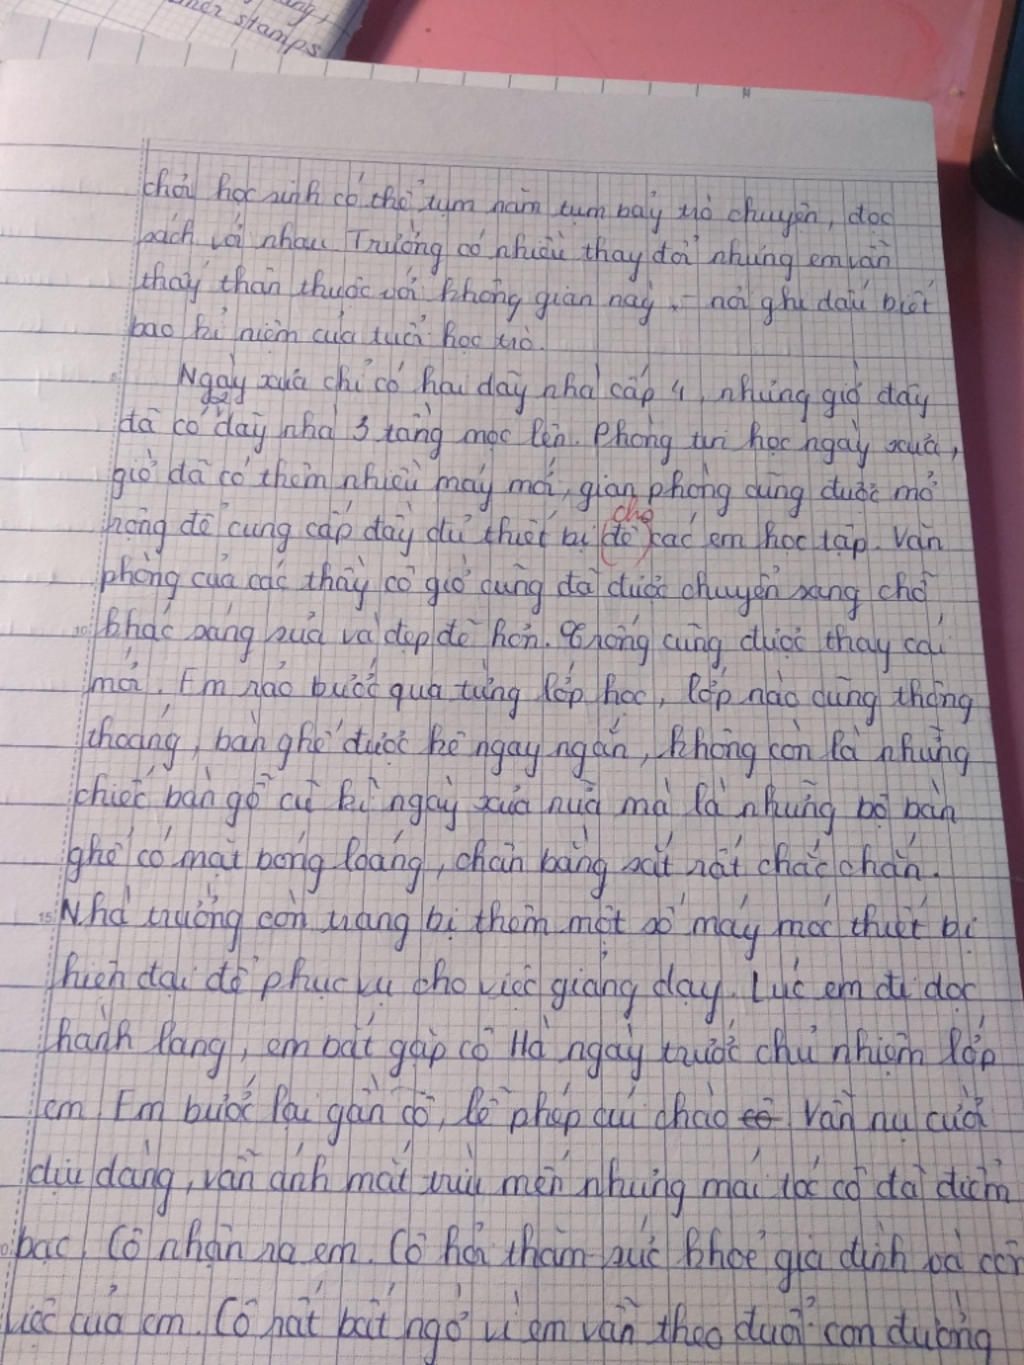 stamps
chơi học sinh có thể tụm năm tụm bảy trò chuyện, đọc
sách với nhau Trường có nhiều thay đổi nhưng em vẫn
thấy thân thuộc với không gian này - nơi ghi dấu biết
bao kỉ niệm của tuổi học trò.
Ngày xưa chỉ có hai dãy nhà cấp 4, nhưng giờ đây
đã có dãy nhà 3 tầng mọc lên. Phòng tin học ngày xưa,
giờ đã có thêm nhiều máy mới, gian phòng cũng được mở
cho
rộng để cung cấp đầy đủ thiết bị (để) các em học tập. Văn
phòng của các thầy cô giờ cũng đã được chuyển sang chỗ
khác sáng sủa và đẹp đẽ hơn. Trống cũng được thay cái
mới. Em rảo bước qua từng lớp học, lớp nào cũng thông
thoáng, bàn ghế được kê ngay ngắn, không còn là những
chiếc bàn gỗ cũ kĩ ngày xưa nữa mà là những bộ bàn
ghế có mặt bóng loáng, chân bằng sắt rất chắc chắn.
Nhà trường còn trang bị thêm một số máy móc thiết bị
hiện đại để phục vụ cho việc giảng dạy. Lúc em đi dọc
hành lang, em bắt gặp cô Hà ngày trước chủ nhiệm lớp
em Em bước lại gần cô, lễ phép cúi chào cô Vẫn nụ cười
dịu dàng, vẫn ánh mắt trìu mến nhưng mái tóc cô đã điểm
bạc. Cô nhận ra em. Cô hỏi thăm sức khoẻ gia đình và côn
việc của em. Cô rất bất ngờ vì em vẫn theo đuổi con đường